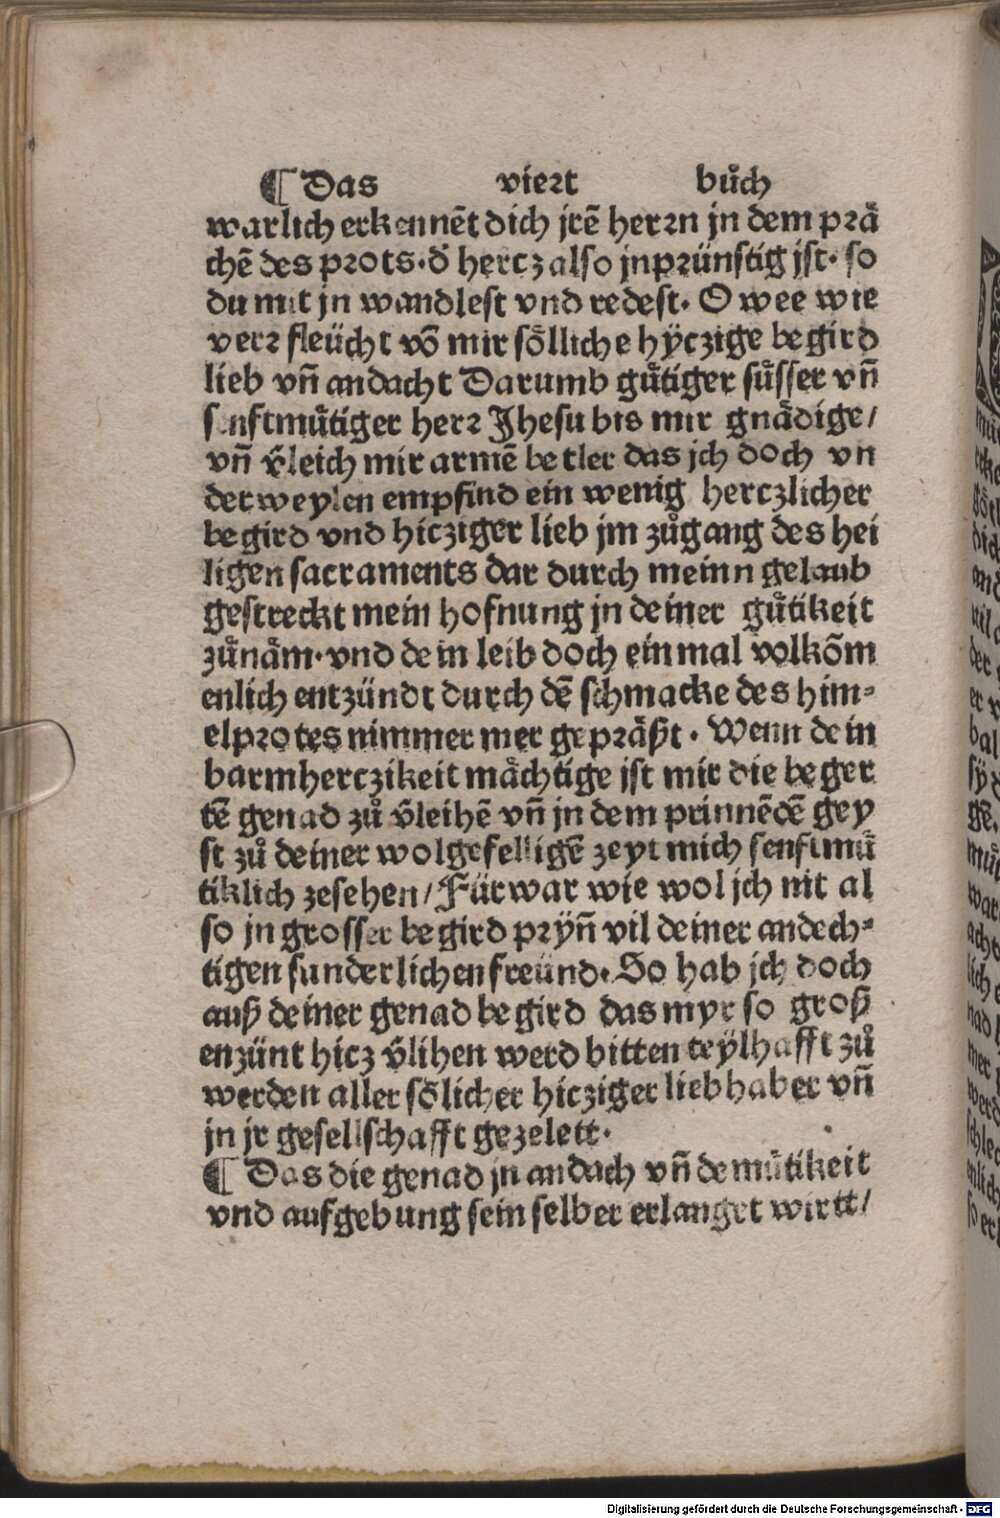 ¶ Das viert bůch
warlich erkennēt dich jrē herrn jn dem prå
chē des prots. d̄ hercz also jnprünstig jst. so
du mit jn wandlest vnd redest. O wee wie
verr fleücht vō mir sölliche hyczige begird
lieb vn̄ andacht Darumb gůtiger süsser vn̄
senftmůtiger herr Jhesu bis mir gnådige/
vn̄ v̄leich mir armē betler das jch doch vn
derweylen empfind ein wenig herczlicher
begird vnd hicziger lieb jm zůgang des hei
ligen sacraments dar durch meinn gelaub
gestreckt mein hofnung jn deiner gůtikeit
zůnåm. vnd dein leib doch einmal volkōm
enlich entzündt durch dē schmacke des him⸗
elprotes nimmer mer gepråßt. Wenn dein
barmherczikeit måchtige jst mir die beger
tē genad zů v̄leihē vn̄ jn dem prinnēdē gey
st zů deiner wolgefelligē zeyt mich senftmů
tiklich zesehen/ Fürwar wie wol jch nit al
so jn grosser begird prÿn̄ vil deiner andech⸗
tigen sunderlichen freünd. So hab jch doch
auß deiner genad begird das myr so groß
enzünt hicz v̄lihen werd bitten teÿlhafft zů
werden aller sölicher hicziger liebhaber vn̄
jn jr gesellschafft gezelett.
¶ Das die genad jn andach vn̄ demůtikeit
vnd aufgebung sein selber erlanget wirtt/
Digitalisierung gefördert durch die Deutsche Forschungsgemeinschaft - DFG